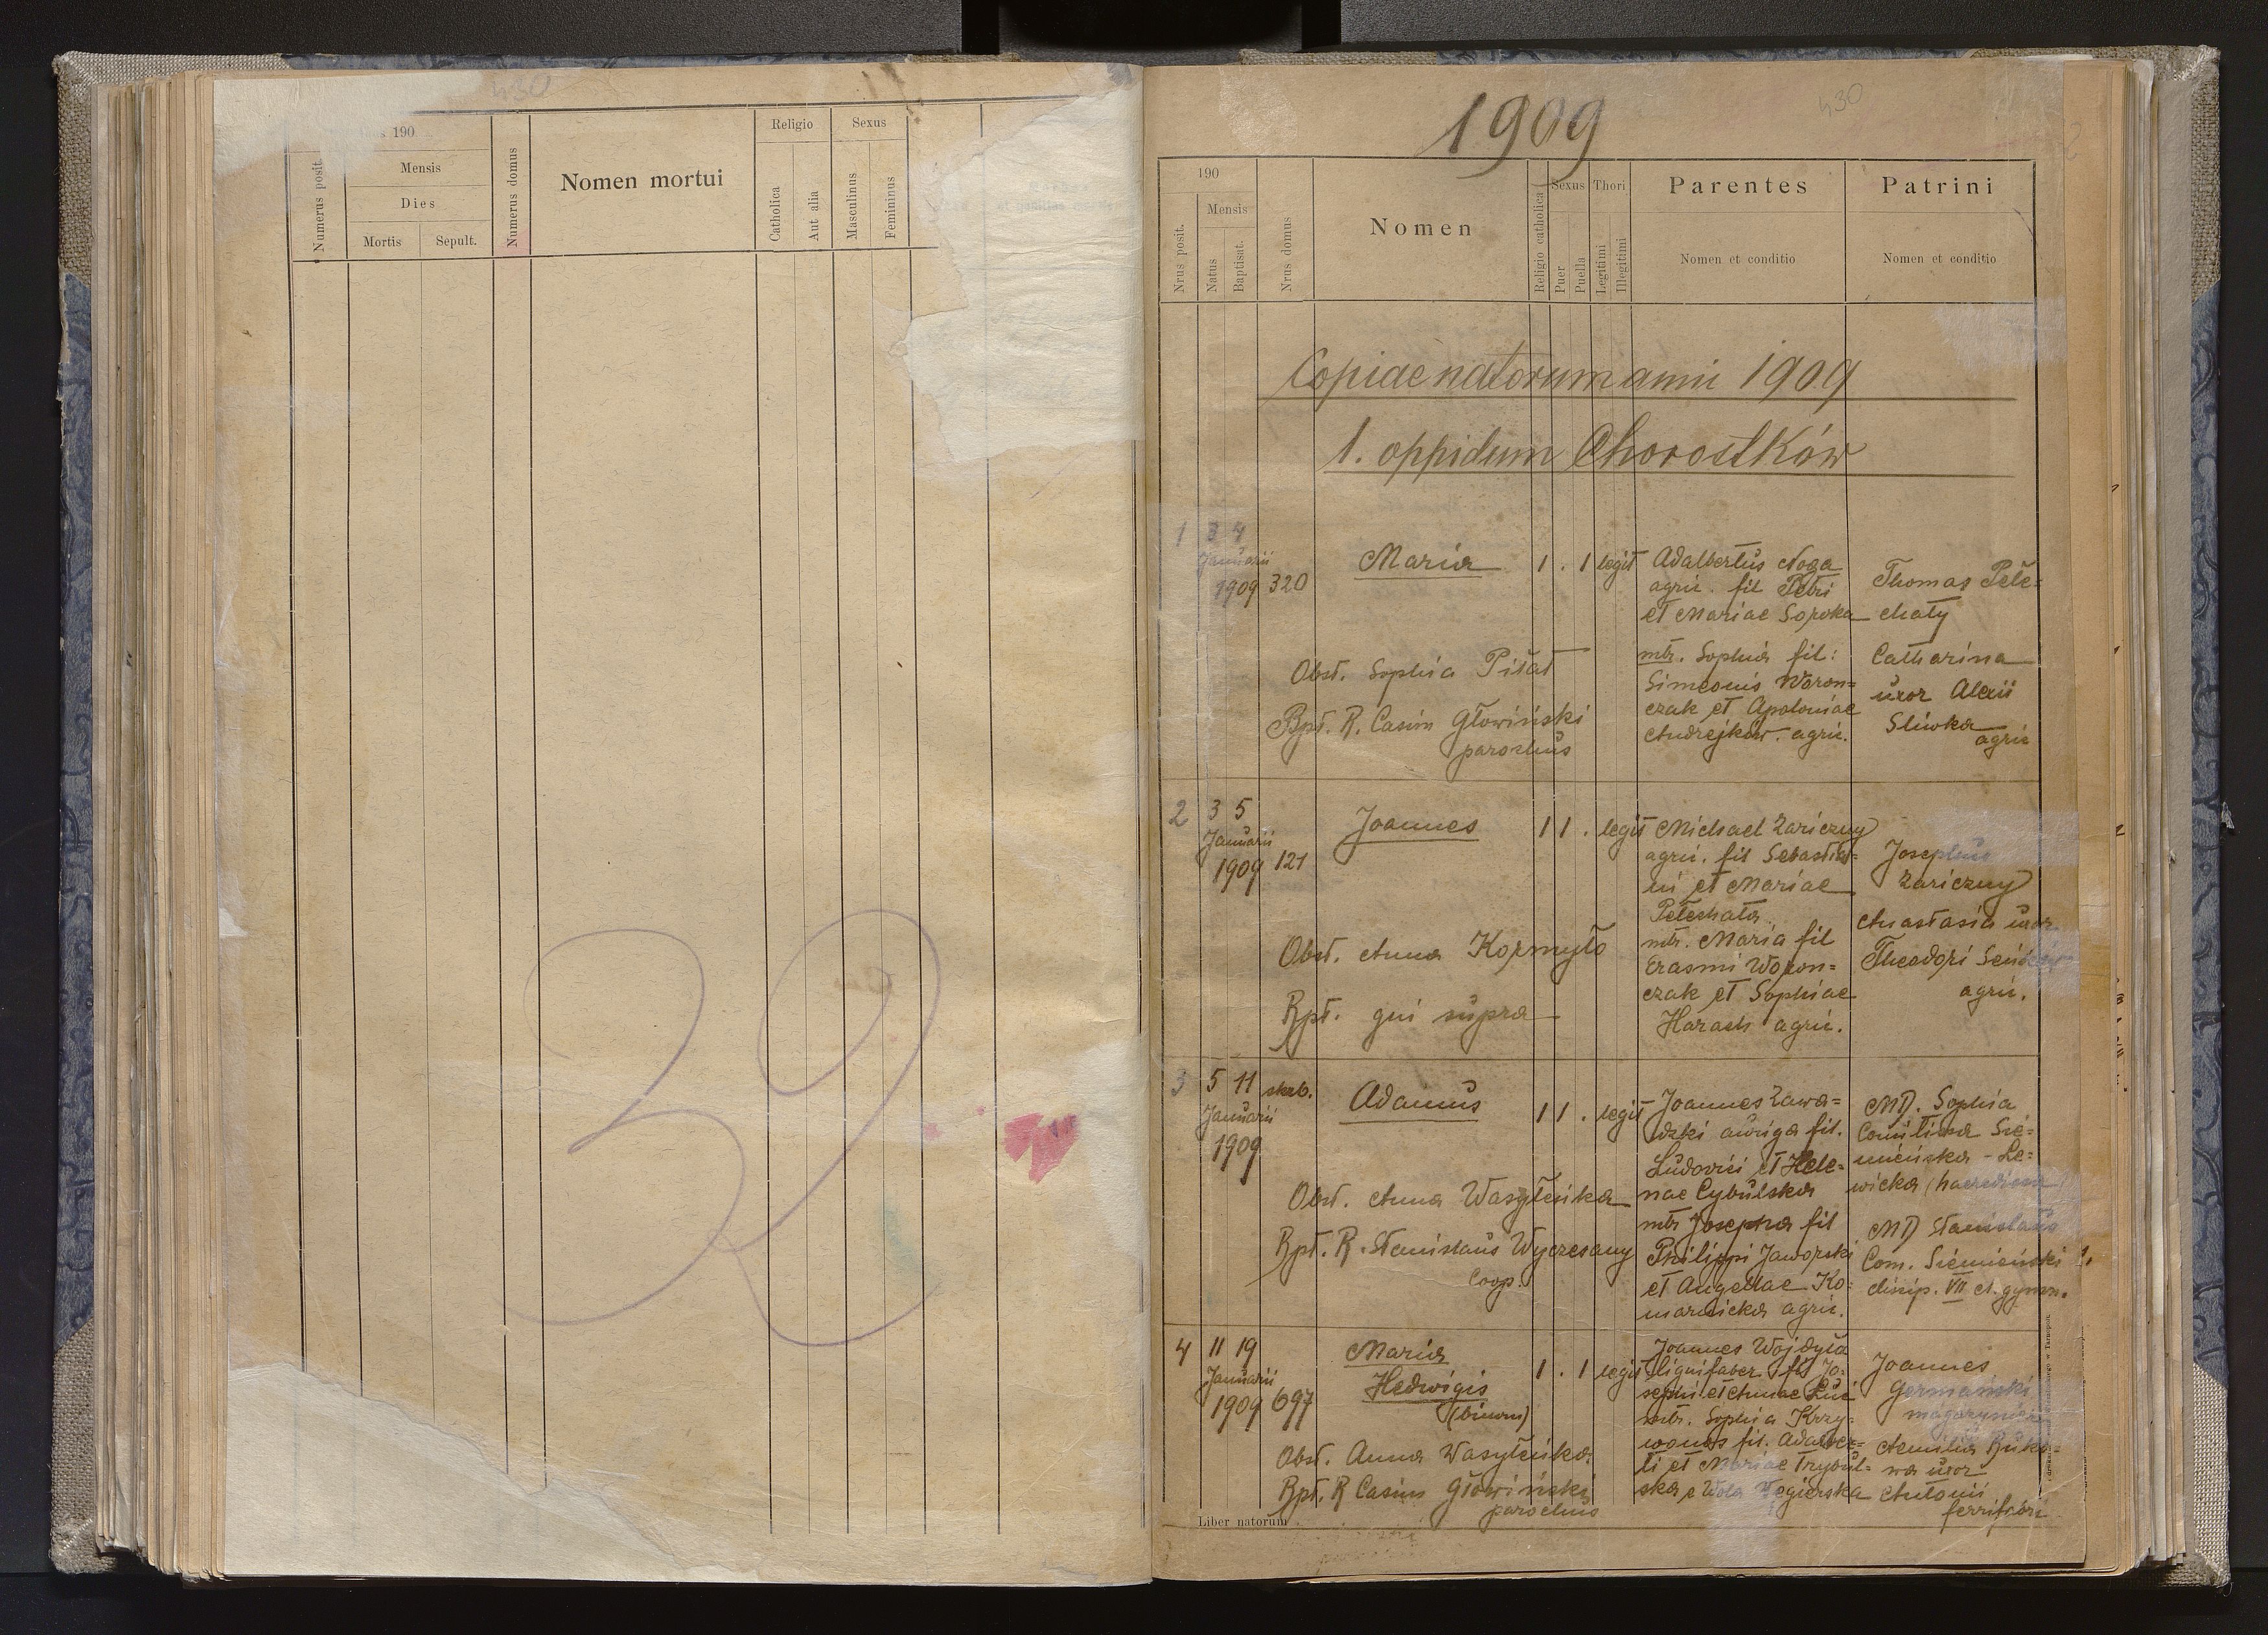 430
s 190
Numerus posit.
Mensis
Dies
Mortis
Sepult.
Numerus domus
Nomen mortui
Religio
Catholica
Aut alia
Sexus
Masculinus
Femininus
32
1909
430
190
Nrus posit.
Mensis
Natus
Baptisat.
Nrus domus
Nomen
Religio catholica
Sexus
Puer
Puella
Thori
Legitimi
Illegitimi
Parentes
Nomen et conditio
Patrini
Nomen et conditio
Copiae natorum anni 1909
1. oppidum Chorostków
1 3 4
Januarii
1909 320
Maria 1 . 1 legit
Adalbertus Noga
agric. fil Petri
et Mariae Soroka
mtr. Sophia fil:
Simeonis Woron=
czak et Apoloniae
Andrejków. agric.
Thomas Pełe=
chaty
Catharina
uxor Alexii
Sliwka
agric
Obst. Sophia Piłat
Bpt. R. Casim Głowiński
parochus
2 3 5
Januarii
1909 121
Joannes 1 1 . legit
Michael Zariczny
agric. fil Sebastia=
ni et Mariae
Pełechata.
mtr. Maria fil
Erasmi Woron=
czak et Sophiae
Harach agric.
Josephus
Zariczny
Anastasia uxor
Theodori
agric.
Obst. Anna Kormyło
Bpt. qui supra
3 5 11 skrb.
Januarii
1909
Adamus 1 1 . legit
Joannes Zawa=
dzki auriga fil.
Ludovici et Hele=
nae Cybulska
mtr Josepha fil
Philippi Jaworski
et Angellae Ko=
marnicka agric.
MD. Sophia
Comitissa Sie=
mieńska - Le=
wicka (haeredissa)
MD Stanislaus
Com. Siemieński
discip. VII cl. gymn.
Obst. Anna Wasyleńka
Bpt. R. Stanislaus Wyczesany
Coop.
4 11 19
Januarii
1909 697
Maria
Hedwigis
(binom)
1 . 1 legit
Joannes Wojdyła
lignifaber fil Jo=
sephi et Annae
mtr. Sophia Krzy=
wonos fil. Adalber=
ti et Mariae Trybul=
ska e Wola Węgierska
Joannes
Germański
Aemilia Buko=
wa uxor
Antonii
ferrifabri
Obst. Anna Wasyleńka.
Bpt. R Casim Głowiński
parochus
Liber natorum